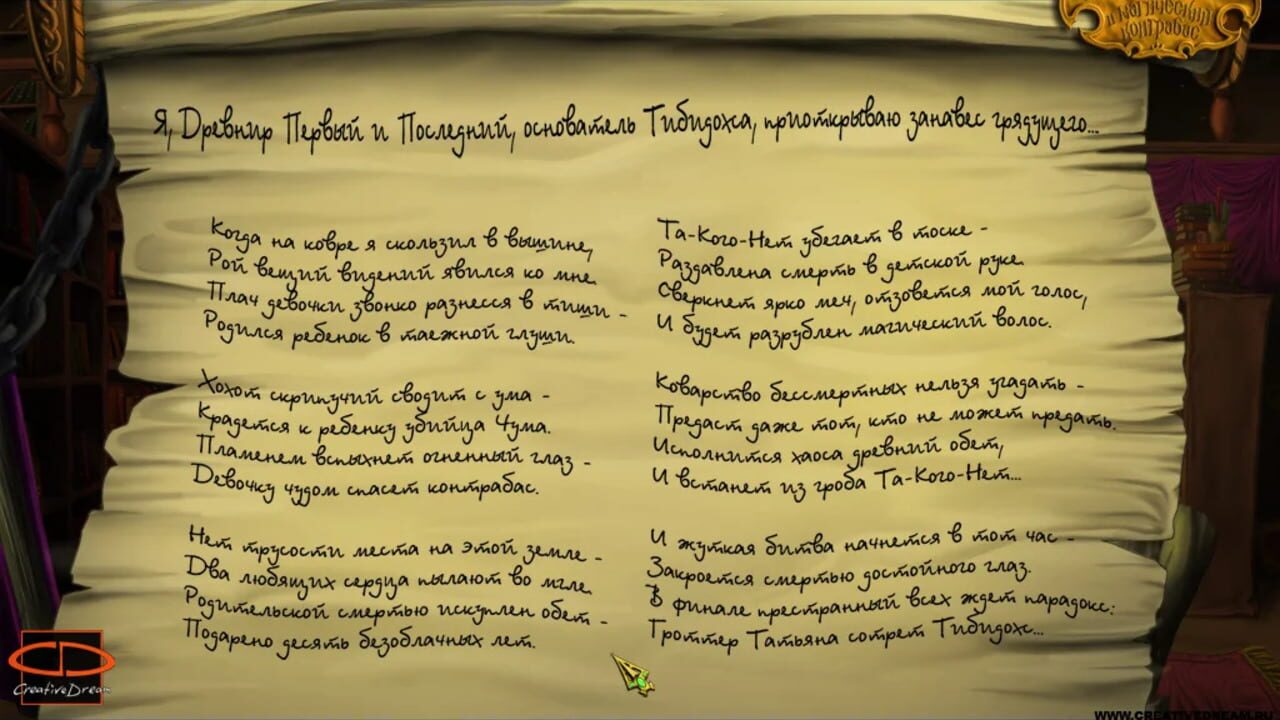 и магический
контрабас
Я, Древнир Первый и Последний, основатель Тибидохса, приоткрываю занавес грядущего...
Когда на ковре я скользил в вышине,
Рой вещий видений явился ко мне.
Плач девочки звонко разнесся в тиши -
Родился ребенок в таежной глуши.
Хохот скрипучий сводит с ума -
Крадется к ребенку убийца Чума.
Пламенем вспыхнет огненный глаз -
Девочку чудом спасет контрабас.
Нет трусости места на этой земле -
Два любящих сердца пылают во мгле.
Родительской смертью искуплен обет -
Подарено десять безоблачных лет.
Та-Кого-Нет убегает в тоске -
Раздавлена смерть в детской руке.
Сверкнет ярко меч, отзовется мой голос,
И будет разрублен магический волос.
Коварство бессмертных нельзя угадать -
Предаст даже тот, кто не может предать.
Исполнится хаоса древний обет,
И встанет из гроба Та-Кого-Нет...
И жуткая битва начнется в тот час -
Закроется смертью достойного глаз.
В финале престранный всех ждет парадокс:
Гроттер Татьяна сотрет Тибидохс...
CreativeDream
WWW.CREATIVEDREAM.RU